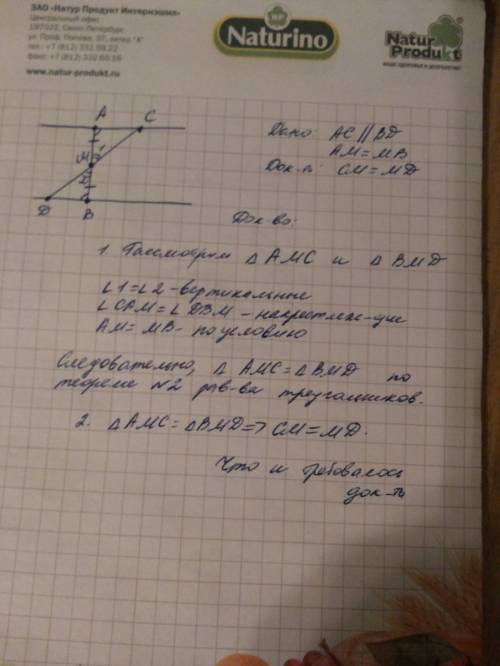 ЗАО «Натур Продукт Интернэшнл»
Центральный офис
197022, Санкт-Петербург,
ул. Проф. Попова, 37, литер "А"
тел.: +7 (812) 332 59 22
факс: +7 (812) 332 60 16
www.natur-produkt.ru
NP
Naturino
Natur
Produkt
A C
M 1
2
D B
Дано AC || BD
AM = MB
Док-ть CM = MD
Док-во:
1. Рассмотрим △ AMC и △ BMD
∠1 = ∠2 - вертикальные
∠CAM = ∠DBM - накрестлеж-ие
AM = MB - по условию
Следовательно, △ AMC = △ BMD по
теореме №2 рав-ва треугольников.
2. △ AMC = △ BMD => CM = MD.
Что и требовалось
док-ть